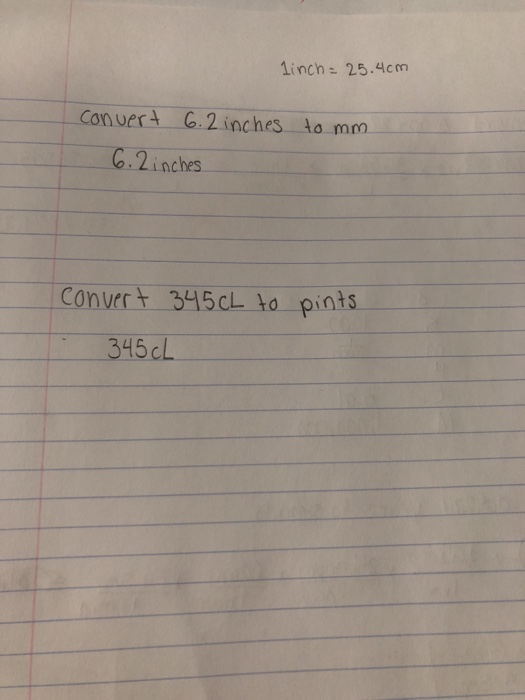 1inch = 25.4cm
Convert 6.2 inches to mm
6.2 inches
Convert 345cL to pints
345cL